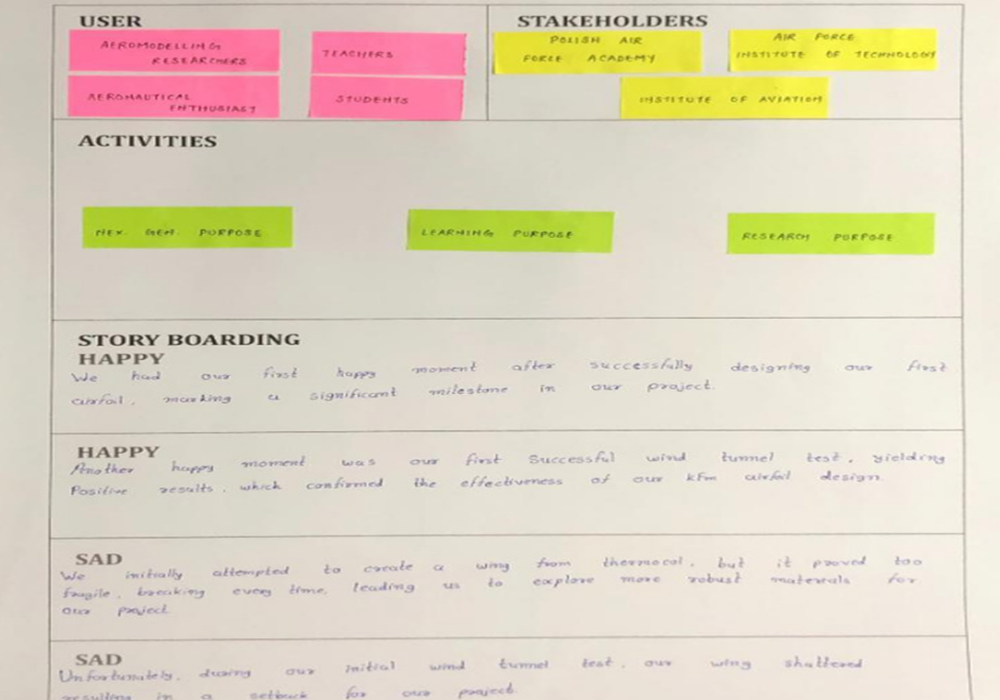 USER
AEROMODELLING
RESEARCHERS
TEACHERS
AERONAUTICAL
ENTHUSIAST
STUDENTS
STAKEHOLDERS
POLISH AIR
FORCE ACADEMY
AIR FORCE
INSTITUTE OF TECHNOLOGY
INSTITUTE OF AVIATION
ACTIVITIES
NEX. GEN. PURPOSE
LEARNING PURPOSE
RESEARCH PURPOSE
STORY BOARDING
HAPPY
We had our first happy moment after successfully designing our first
airfoil, marking a significant milestone in our project.
HAPPY
Another happy moment was our first successful wind tunnel test, yielding
Positive results, which confirmed the effectiveness of our KFm airfoil design.
SAD
We initially attempted to create a wing from thermocol, but it proved too
fragile, breaking every time, leading us to explore more robust materials for
our project.
SAD
Unfortunately, during our initial wind tunnel test, our wing shattered
resulting in a setback for our project.